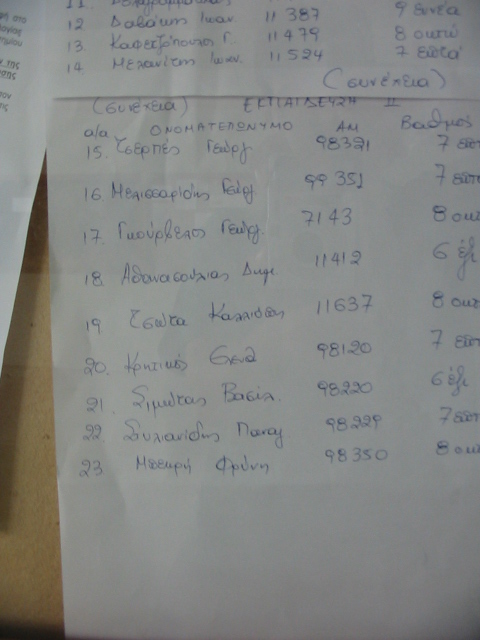 12 Δαβάκης Ιωαν. 11387 9 εννέα
13. Καφετζόπουλος Γ. 11479 8 οκτώ
14 Μελανίτης Ιωαν. 11524 7 επτά
(συνέχεια)
(συνέχεια) ΕΚΠΑΙΔΕΥΣΗ II
α/α ΟΝΟΜΑΤΕΠΩΝΥΜΟ ΑΜ Βαθμός
15. Τσερπές Γεώργ 98321 7 επτ
16. Μελισσαρίδης Γεώργ 99351 7 επτ
17. Γκούρβελος Γεώργ. 7143 8 οκτ
18 Αθανασούλιας Δημ. 11412 6 έξι
19 Τσώτα Καλλιόπη 11637 8 οκτ
20. Κρητικός 98120 7 επτ
21 Σιμώτας Βασίλ. 98220 6 έξι
22 Συλιανίδης Παναγ 98229 7 επτ
23 Μπεκρή Φρύνη 98350 8 οκτ